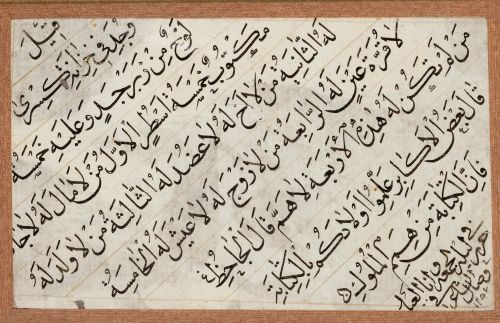 وقيل
وجد في خزائن كسرى
لوح من زبرجد وعليه خمسة
مكتوب خمسة اسطر الاول من لا مال له لا جاه
له الثانية من لا اخ له لا عضد له الثالثة من لا ولد له
لا قرة عين له الرابعة من لا زوج له لا عيش له الخامسة
من لم تكن له هذه الاربعة لا هم قال الجاحظ
قال بعض الاكابر علموا اولادكم بالكتابة
فان الكتابة من هم الملوك